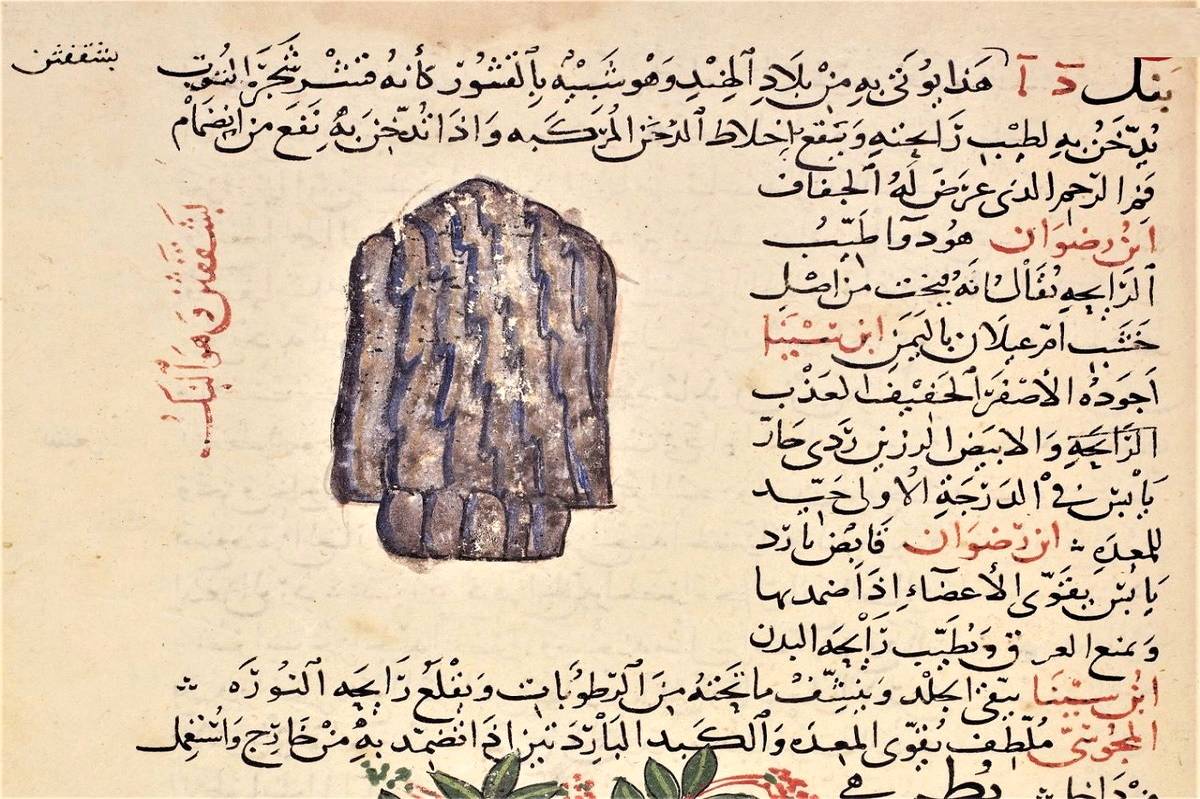 بشقفثن
بنك د آ هذا يوتى به من بلاد الهند وهو شبيه بالقشور كأنه قشر شجرة التوت
يدخن به لطيب رائحته ويقع باخلاط الدخن المركبه واذا تدخن به نفع من انضمام
فم الرحم الذى عرض له الجفاف
ابن رضوان هو دوآ طيب
الرايحه يقال انه ينحت من اصل
خشب ام غيلان باليمن ابن سينا
اجوده الاصفر الخفيف العذب
الرايحه والابيض الرزين ردى حار
يابس فى الدرجة الاولى جيد
للمعده ابن رضوان قابض بارد
يابس يقوى الأعضاء اذا ضمد بها
ويمنع العرق ويطيب رايحه البدن
ابن سينا ينقى الجلد وينشف ما تحته من الرطوبات ويقلع رايحه النوره
المجوسى ملطف يقوى المعده والكبد الباردتين اذا تضمد به من خارج واستعمل
بشقفثن وهو البنك